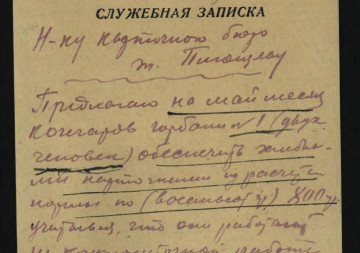 СЛУЖЕБНАЯ ЗАПИСКА
Н-ку карточного бюро
т.
Предлагаю на май месяц
кочегаров № 1 (двух
человек) обеспечить хлебны-
ми карточками из расчета
нормы по (восемьсот гр) 800 гр.
учитывая, что они работают
на работе